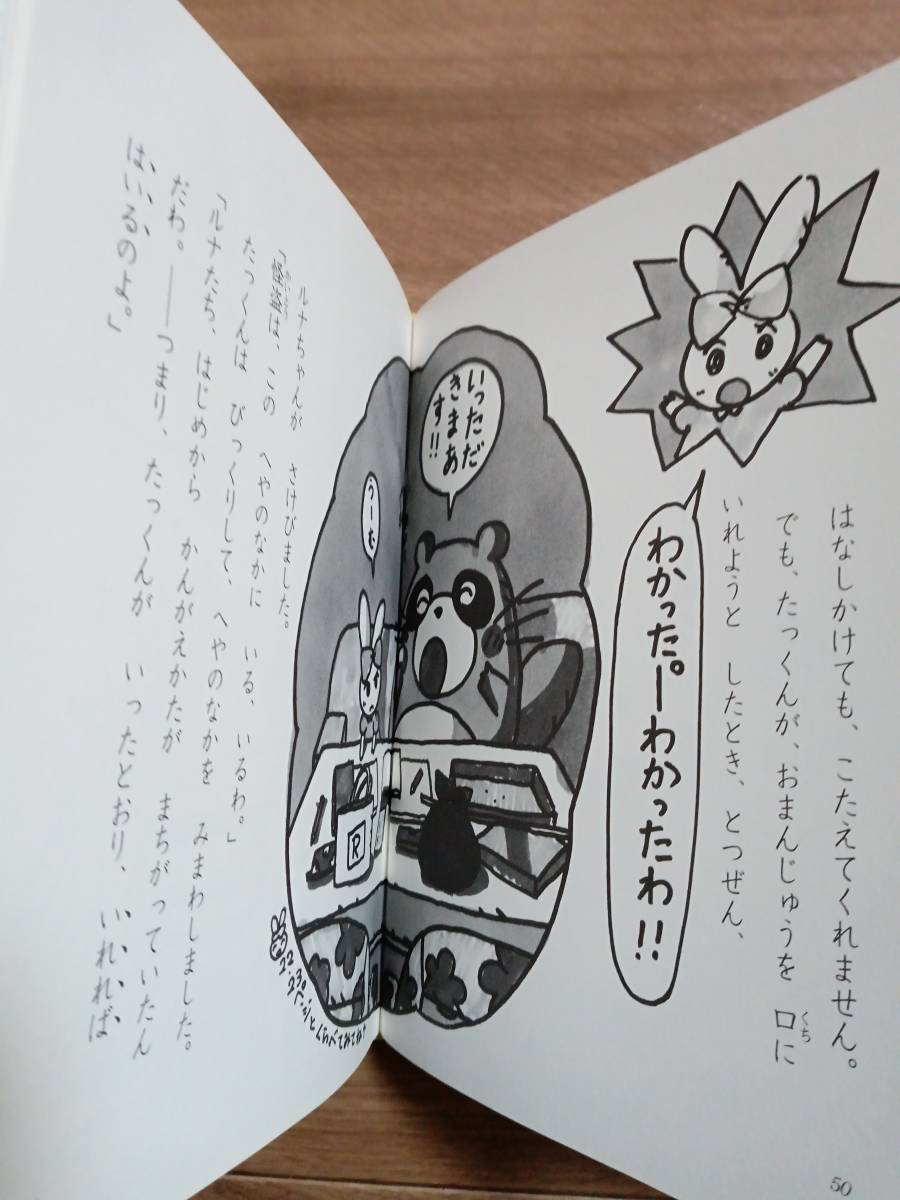 はなしかけても、こたえてくれません。
でも、たっくんが、おまんじゅうを 口に
くち
いれようと したとき、とつぜん、
わかったぴーわかったわ!!
いっただ
きまあ
す!!
うーむ
R
ルナちゃんが さけびました。
は、この へやのなかに いる、いるわ。」
たっくんは びっくりして、へやのなかを みまわしました。
「ルナたち、はじめから かんがえかたが まちがっていたん
だわ。――つまり、たっくんが いったとおり、いれれば
はいるのよ。」
50